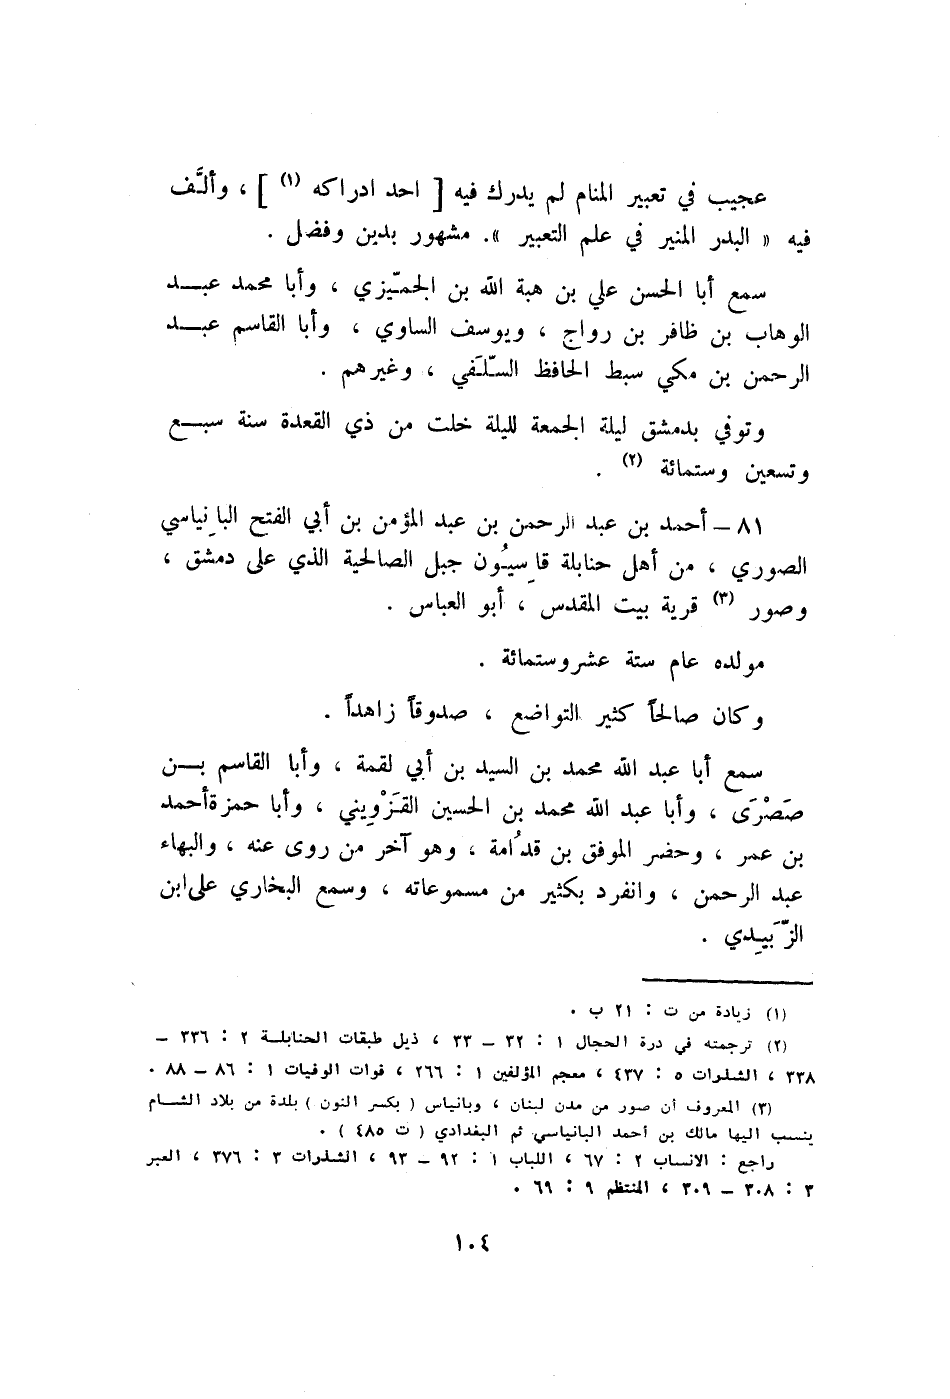 عجيب في تعبير المنام لم يدرك فيه [ احد ادراكه (١) ] ، وألَّف
فيه « البدر المنير في علم التعبير ». مشهور بدين وفضل .
سمع أبا الحسن علي بن هبة الله بن الجمّيزي ، وأبا محمد عبـــد
الوهاب بن ظافر بن رواج ، ويوسف الساوي ، وأبا القاسم عبـــد
الرحمن بن مكي سبط الحافظ السّلَفي ، وغيرهم .
وتوفي بدمشق ليلة الجمعة لليلة خلت من ذي القعدة سنة سبـــع
وتسعين وستمائة (٢) .
٨١ – أحمد بن عبد الرحمن بن عبد المؤمن بن أبي الفتح البانِياسي
الصوري ، من أهل حنابلة قاسِيُون جبل الصالحية الذي على دمشق ،
وصور (٣) قرية بيت المقدس ، أبو العباس .
مولده عام ستة عشر وستمائة .
وكان صالحاً كثير التواضع ، صدوقاً زاهداً .
سمع أبا عبد الله محمد بن السيد بن أبي لقمة ، وأبا القاسم بـــن
صَصْرَى ، وأبا عبد الله محمد بن الحسين القَزْوِيني ، وأبا حمزة أحمد
بن عمر ، وحضر الموفق بن قدُامة ، وهو آخر من روى عنه ، والبهاء
عبد الرحمن ، وانفرد بكثير من مسموعاته ، وسمع البخاري على ابن
الزَّبِيدي .
(١) زيادة من ت : ٢١ ب .
(٢) ترجمته في درة الحجال ١ : ٣٢ – ٣٣ ، ذيل طبقات الحنابلـة ٢ : ٣٣٦ –
٣٣٨ ، الشذرات ٥ : ٤٣٧ ، معجم المؤلفين ١ : ٢٦٦ ، فوات الوفيات ١ : ٨٦ – ٨٨ .
(٣) المعروف أن صور من مدن لبنان ، وبانياس ( بكسر النون ) بلدة من بلاد الشـــام
ينسب اليها مالك بن أحمد البانياسي ثم البغدادي ( ت ٤٨٥ ) .
راجع : الانساب ٢ : ٦٧ ، اللباب ١ : ٩٢ – ٩٣ ، الشذرات ٣ : ٣٧٦ ، العبر
٣ : ٣٠٨ – ٣٠٩ ، المنتظم ٩ : ٦٩ .
١٠٤